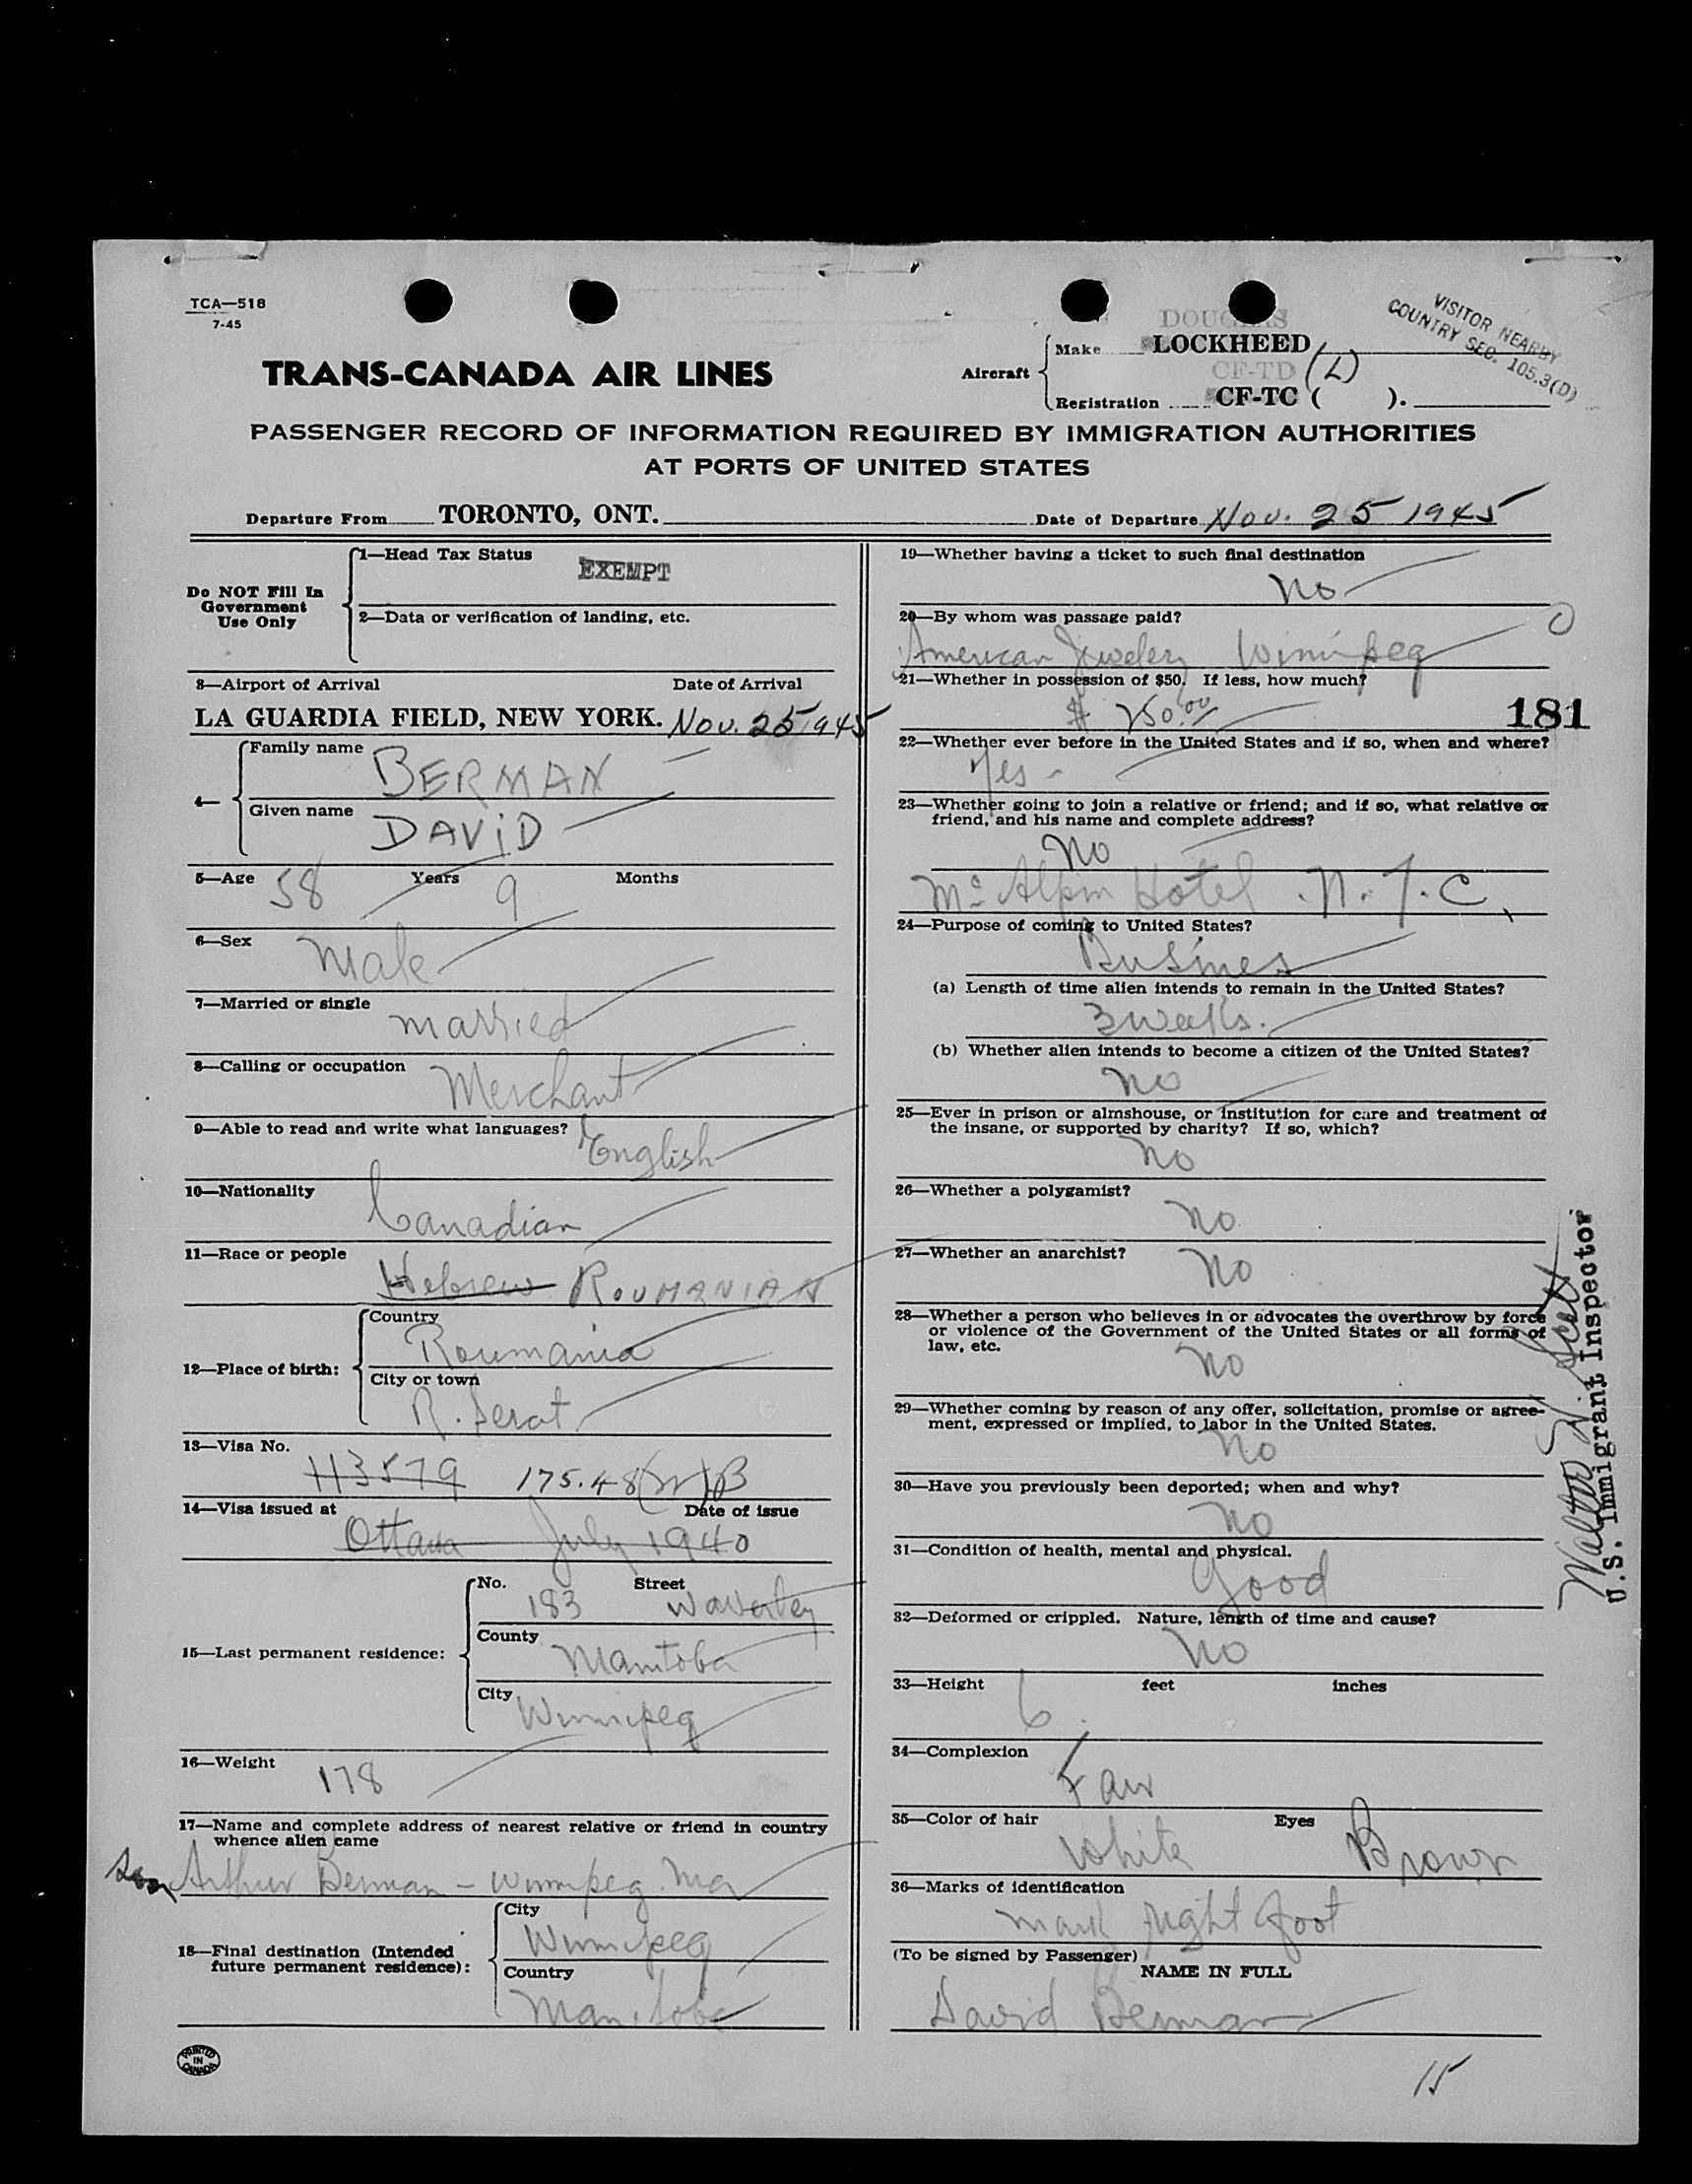 TCA—518
7-45
VISITOR NEARBY
COUNTRY SEC. 105.3(D)
TRANS-CANADA AIR LINES
DOUGLAS
Aircraft
Make LOCKHEED
CF-TD (L)
Registration CF-TC ( ).
PASSENGER RECORD OF INFORMATION REQUIRED BY IMMIGRATION AUTHORITIES
AT PORTS OF UNITED STATES
Departure From TORONTO, ONT. Date of Departure Nov. 25 1945
Do NOT Fill In
Government
Use Only
1—Head Tax Status
EXEMPT
2—Data or verification of landing, etc.
3—Airport of Arrival Date of Arrival
LA GUARDIA FIELD, NEW YORK. Nov. 25 1945
4—
Family name BERMAN
Given name DAVID
5—Age 58 Years 9 Months
6—Sex Male
7—Married or single married
8—Calling or occupation Merchant
9—Able to read and write what languages? English
10—Nationality Canadian
11—Race or people Hebrew ROUMANIAN
12—Place of birth:
Country Roumania
City or town R. Serat
13—Visa No.
H3579 175.48
14—Visa issued at Date of issue
Ottawa July 1940
15—Last permanent residence:
No. 183 Street Waverley
County Manitoba
City Winnipeg
16—Weight 178
17—Name and complete address of nearest relative or friend in country
whence alien came
Son Arthur Berman – Winnipeg. Ma
18—Final destination (Intended
future permanent residence):
City Winnipeg
Country Manitoba
PRINTED
IN
CANADA
19—Whether having a ticket to such final destination
No
20—By whom was passage paid? 0
American Jewelery Winnipeg
21—Whether in possession of $50. If less, how much?
$ 250.00
181
22—Whether ever before in the United States and if so, when and where?
Yes –
23—Whether going to join a relative or friend; and if so, what relative or
friend, and his name and complete address?
No
Mc Alpin Hotel . N. Y. C.
24—Purpose of coming to United States?
Busines
(a) Length of time alien intends to remain in the United States?
3 weeks.
(b) Whether alien intends to become a citizen of the United States?
No
25—Ever in prison or almshouse, or institution for care and treatment of
the insane, or supported by charity? If so, which?
No
26—Whether a polygamist?
No
27—Whether an anarchist?
No
28—Whether a person who believes in or advocates the overthrow by force
or violence of the Government of the United States or all forms of
law, etc.
No
29—Whether coming by reason of any offer, solicitation, promise or agree-
ment, expressed or implied, to labor in the United States.
No
30—Have you previously been deported; when and why?
No
31—Condition of health, mental and physical.
Good
32—Deformed or crippled. Nature, length of time and cause?
No
33—Height 6 feet inches
34—Complexion Fair
35—Color of hair White Eyes Brown
36—Marks of identification
mark right foot
(To be signed by Passenger)
NAME IN FULL
David Berman
15
Walter
U.S. Immigrant Inspector